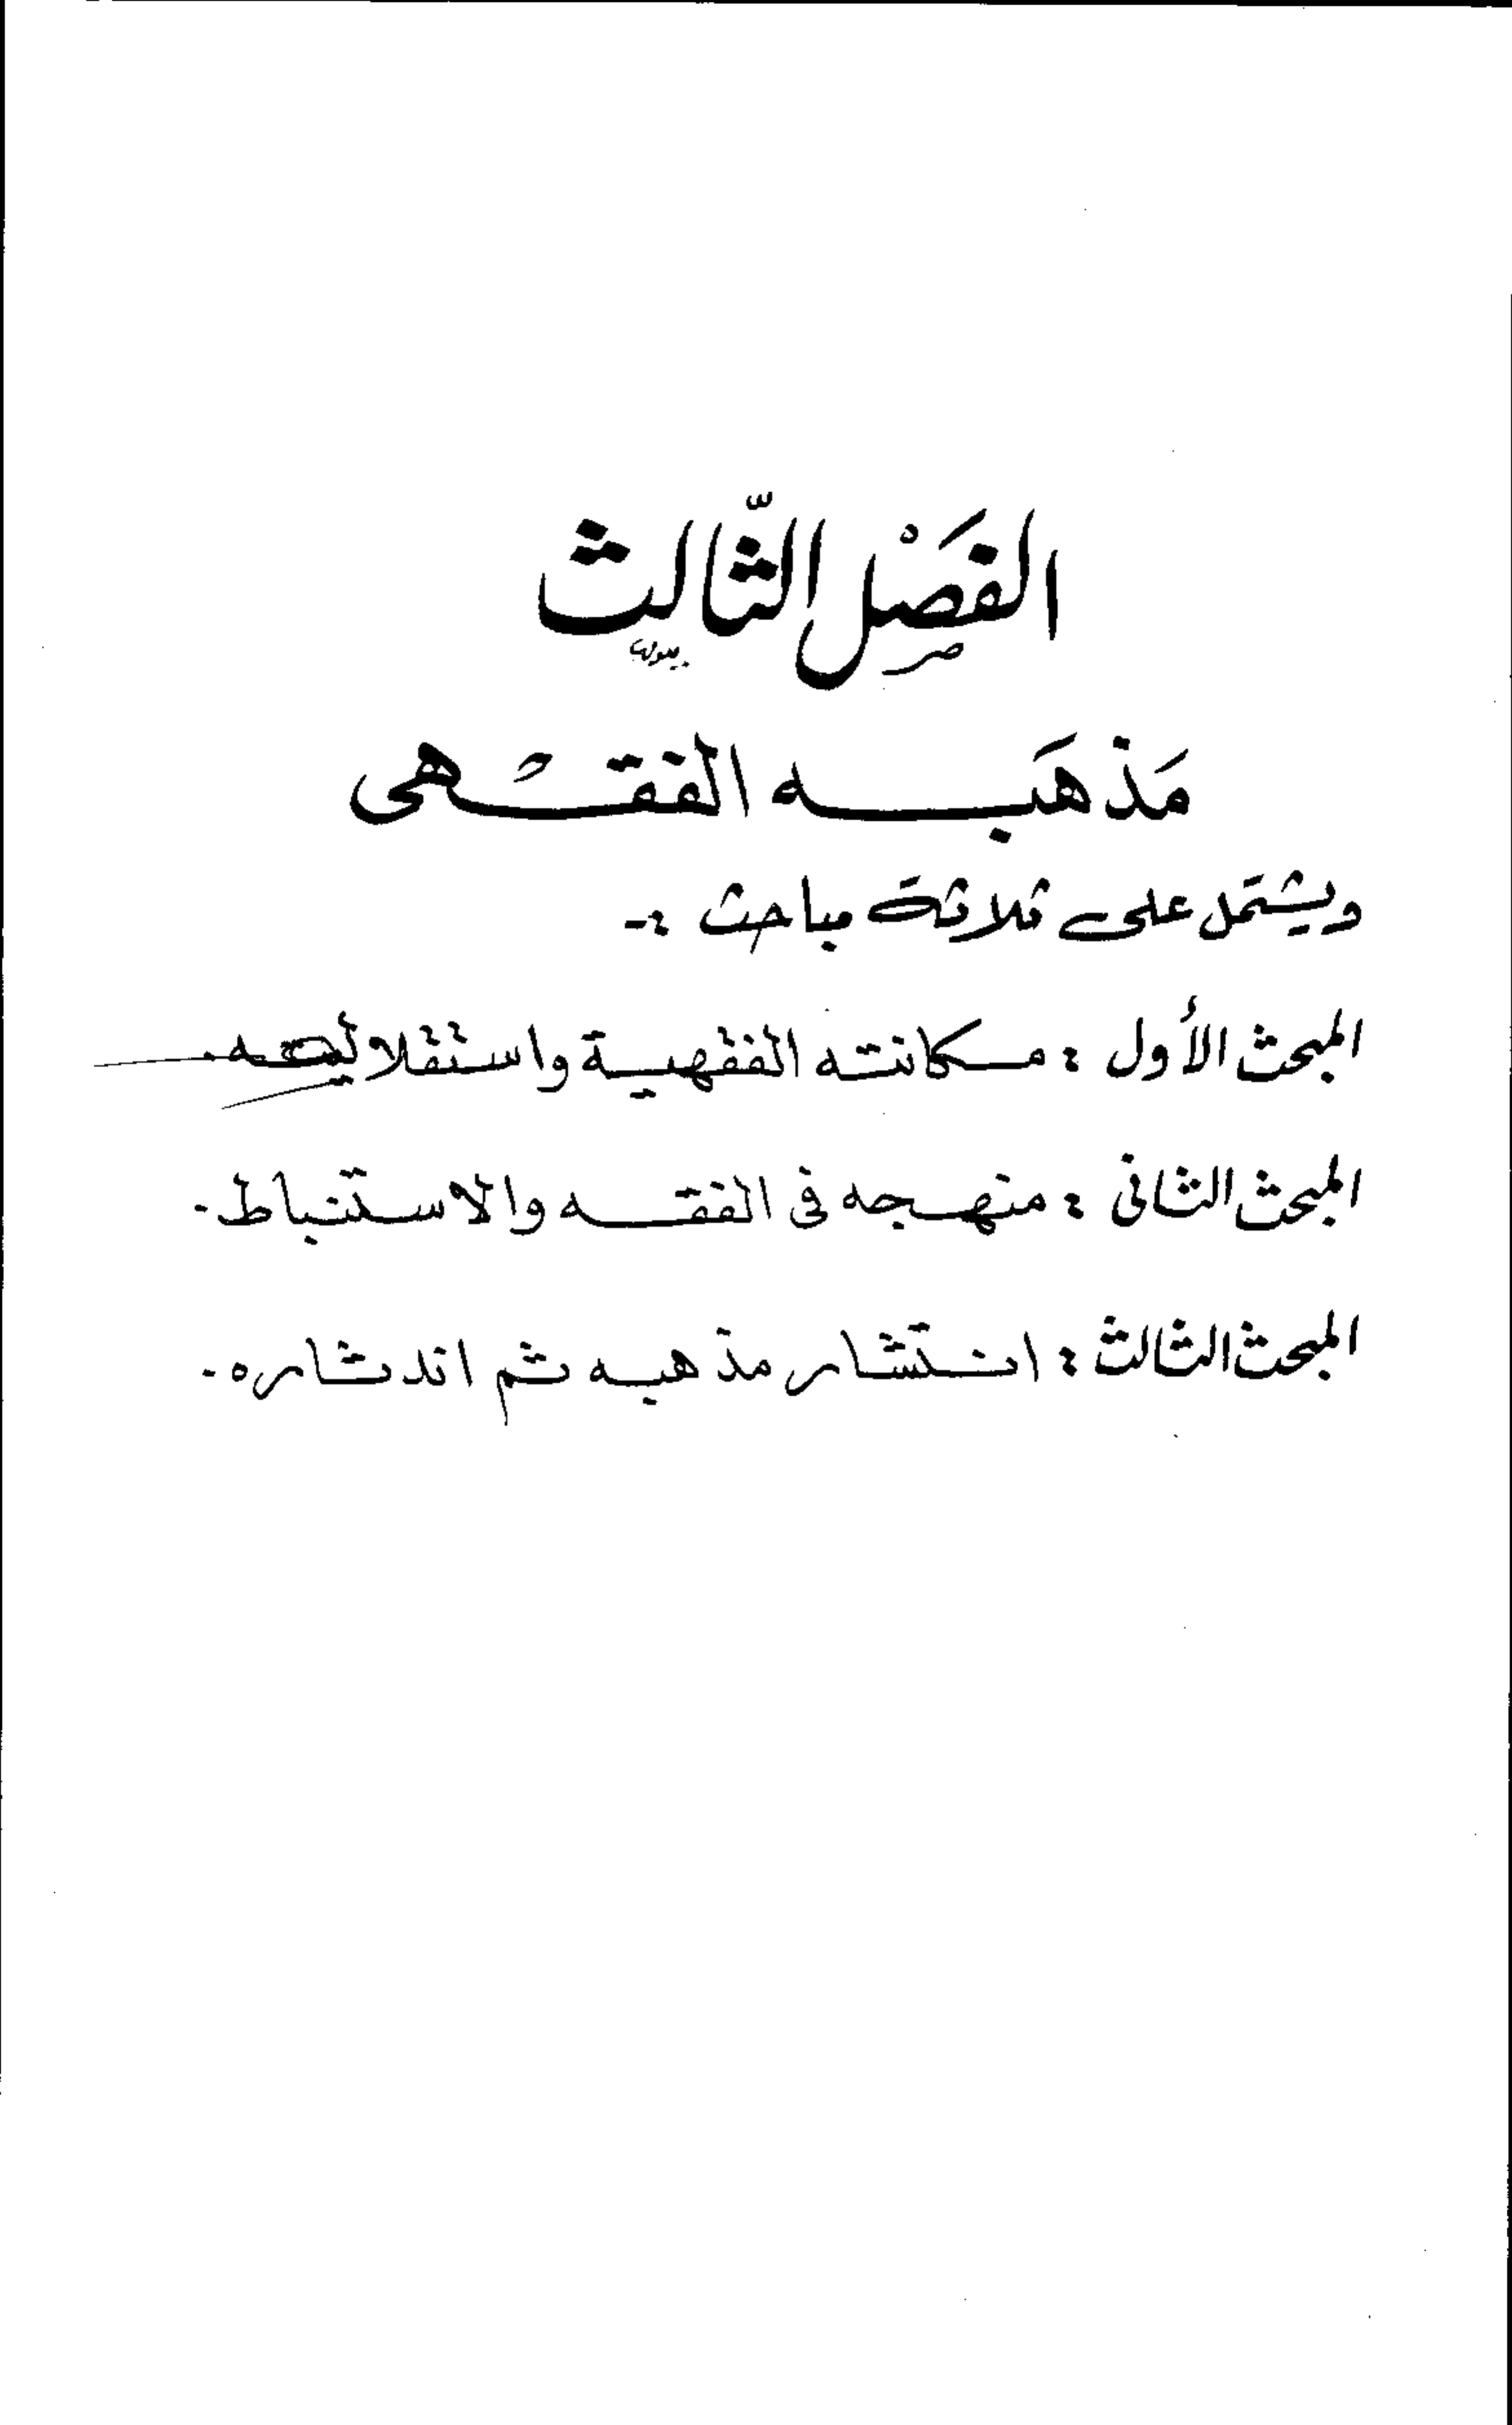 الفَصْل الثّالث
مَذهَبه الفقهى
ويشتمل على ثلاثة مباحث :-
المبحث الأول : مكانته الفقهية واستقلاليته.
المبحث الثانى : منهجه فى الفقه والاستنباط.
المبحث الثالث : انتشار مذهبه ثم اندثاره.